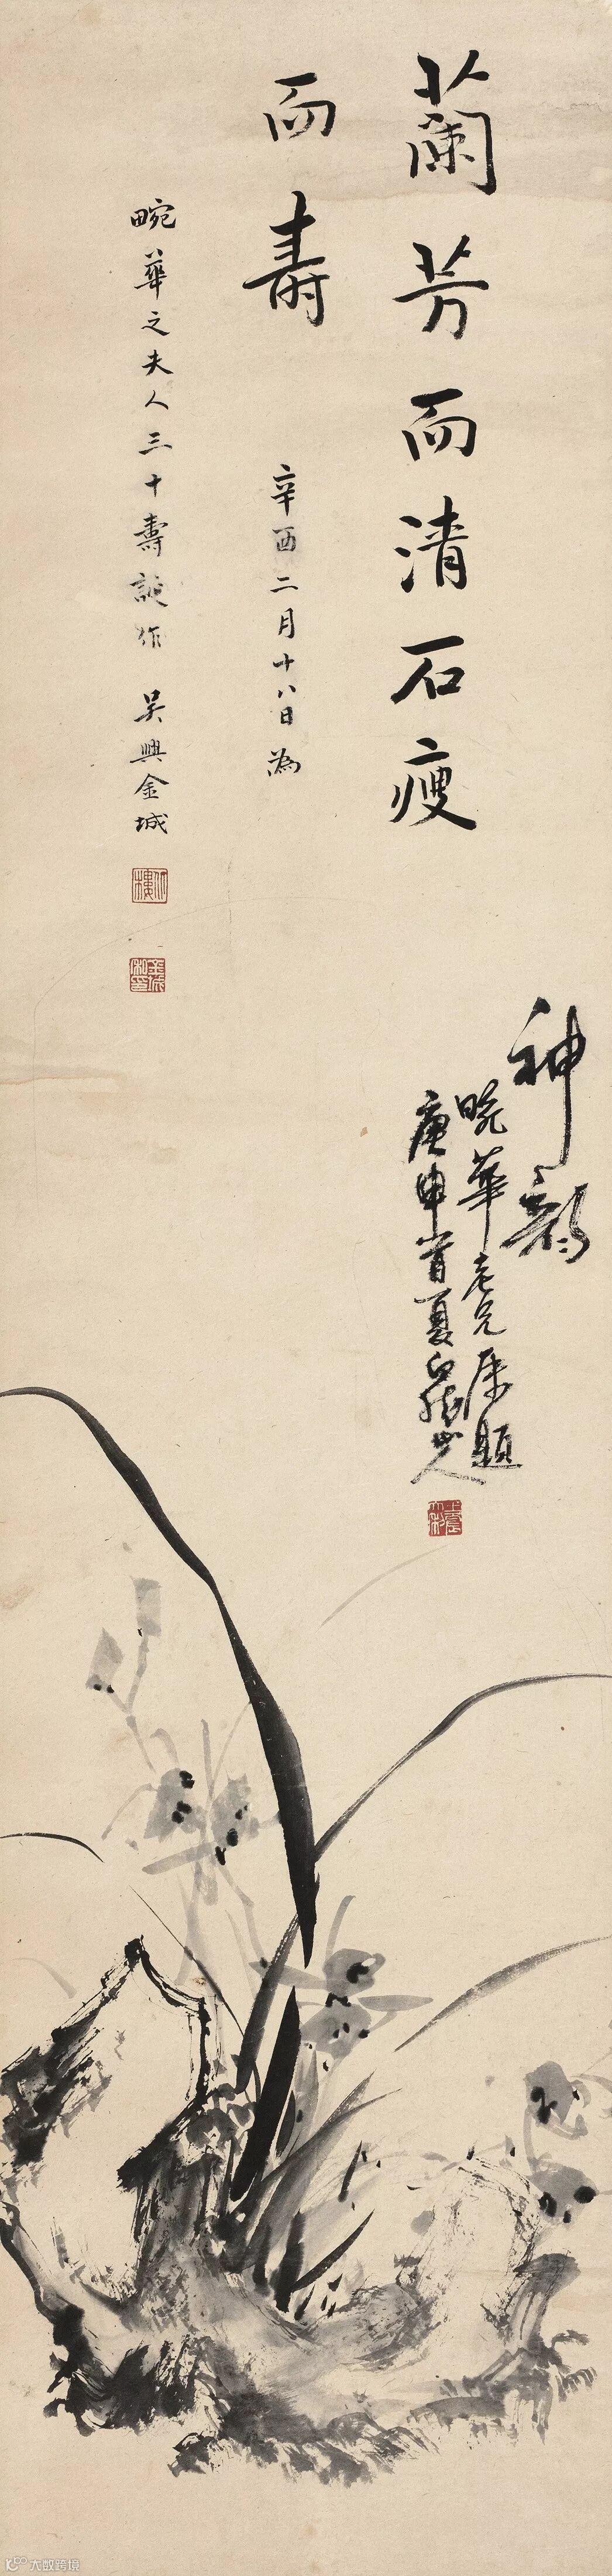 蘭芳而清石瘦
而壽
辛酉二月十八日為
畹華之夫人三十壽誕作 吳興金城
神韵
畹華老兄属題
庚申首夏白龍山人
大数跨境